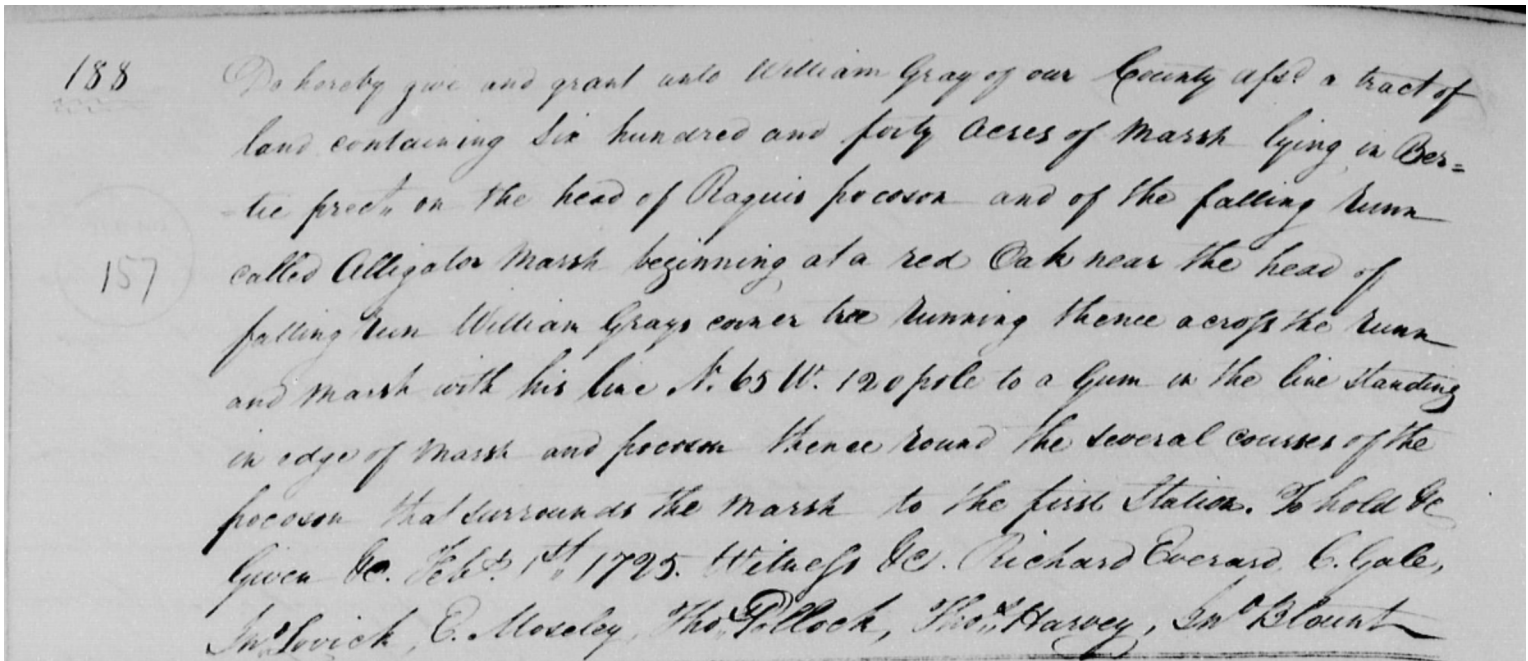 188
Do hereby give and grant unto William Gray of our County afsd a tract of
land containing Six hundred and forty Acres of Marsh lying in Ber=
-tie prect. on the head of Raquis pocoson and of the falling Runn
157
called Alligator Marsh beginning at a red Oak near the head of
falling Run William Grays corner tree Running thence across the Runn
and Marsh with his line N. 65 W. 120 pole to a Gum in the line Standing
in edge of Marsh and pocoson thence round the several courses of the
pocoson that surrounds the Marsh to the first Station. To hold &c
Given &c. Feb. 1st 1725. Witness &c. Richard Everard, C. Gale,
Jno. Lovick, E. Moseley, Tho. Pollock, Thos. Harvey, Jno Blount